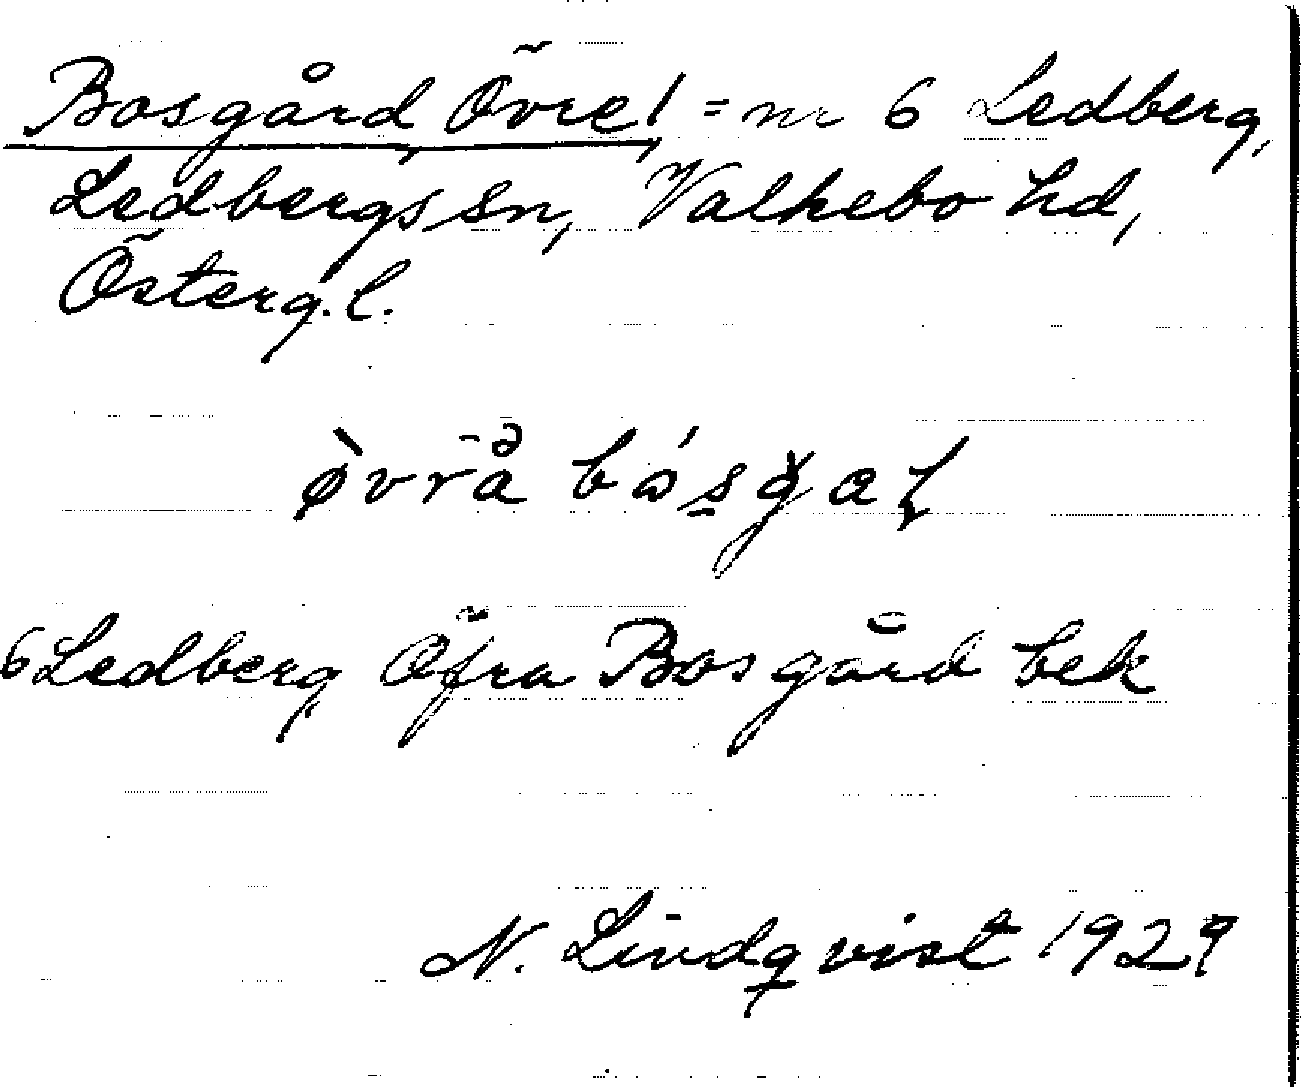 Bosgård, Övre, = nr 6 Ledberg,
Ledbergs sn, Valkebo hd,
Österg.l.
6 Ledberg Öfra Bosgård bek
N. Lindqvist 1929